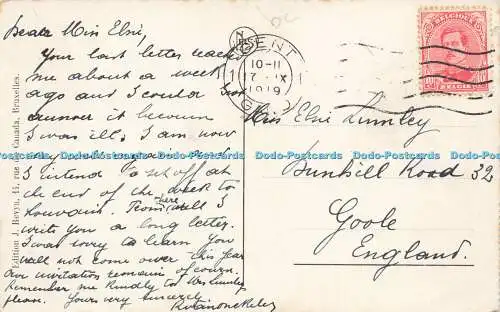 Dear Miss Elsie,
Your last letter reached
me about a week
ago and I could not
answer it because
I was ill; I am now
I intend to set off at
the end of the week to
Louvain. From here will I
write you a long letter.
I was sorry to learn you
will not come over this year
Our invitation remains of course.
Remember me kindly to Mrs Lumley
please. Yours very sincerely
Edition J. Revyn, 15, rue du Canada, Bruxelles.
GENT
10-11
17 IX
1919
GAND
BELGIQUE
BELGIË
Miss Elsie Lumley
Bunhill Road 32
Goole
England.
Dodo-Postcards Dodo-Postcards Dodo-Postcards Dodo-Postcards